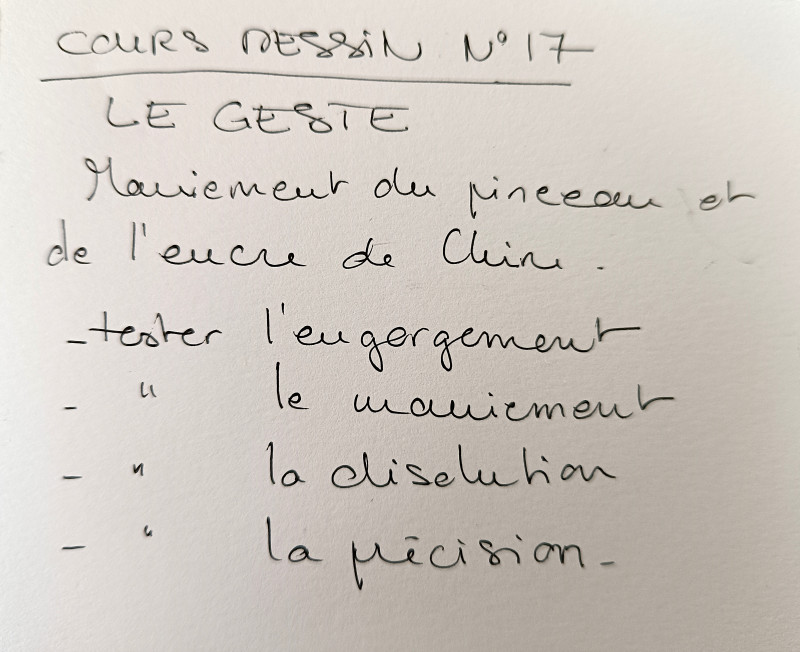 COURS DESSIN N° 17
LE GESTE
Maniement du pinceau et
de l'encre de Chine.
- tester l'engorgement
- " le maniement
- " la disolution
- " la précision -